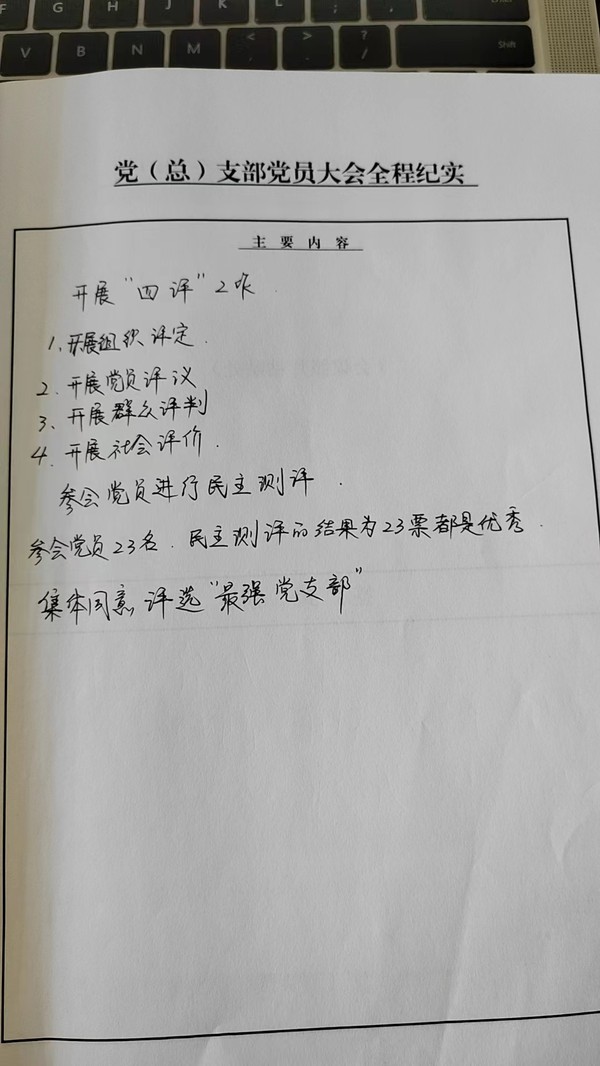 F G H J K L
V B N M < , > . ? / Shift
党（总）支部党员大会全程纪实
主要内容
开展“四评”工作.
1、开展组织评定.
2、开展党员评议
3、开展群众评判
4、开展社会评价.
参会党员进行民主测评.
参会党员23名.民主测评的结果为23票都是优秀.
集体同意评选“最强党支部”